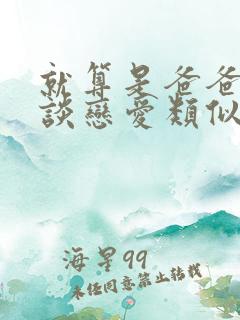 就算是爸爸
談戀愛類似
海星99
未經同意禁止轉載